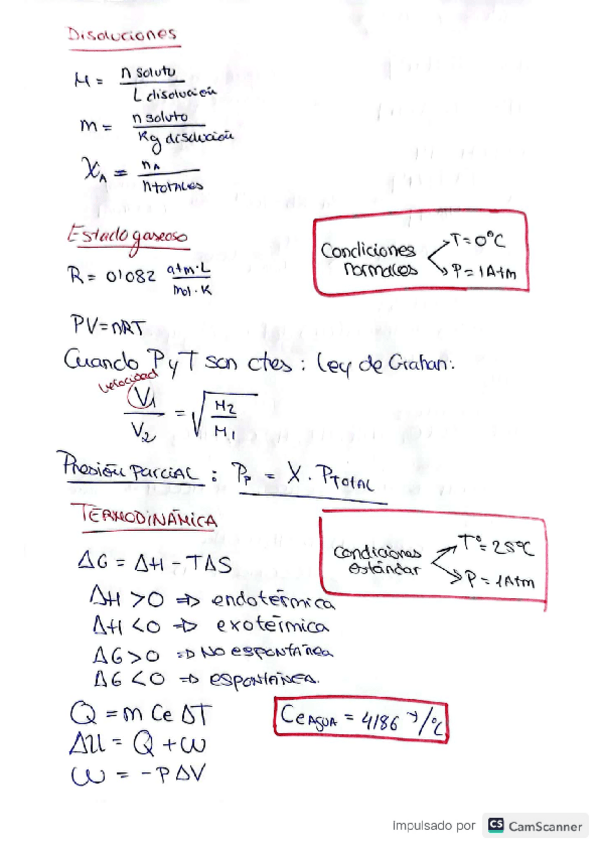 Disoluciones
M = n soluto / L disolución
m = n soluto / Kg disolución
X_A = n_A / n TOTALES
Estado gaseoso
R = 0'082 atm·L / mol·K
Condiciones normales
T = 0ºC
P = 1 Atm
PV = nRT
Cuando P y T son ctes: Ley de Grahan:
velocidad
V1 / V2 = √(M2 / M1)
Presión parcial: Pp = X · PTOTAL
TERMODINÁMICA
Condiciones estándar
Tº = 25ºC
P = 1 Atm
ΔG = ΔH - TΔS
ΔH > 0 => endotérmica
ΔH < 0 => exotérmica
ΔG > 0 => NO espontánea
ΔG < 0 => espontánea.
Q = m Ce ΔT
Ce AGUA = 4186 J/ºC
ΔU = Q + W
W = -PΔV
Impulsado por CS CamScanner